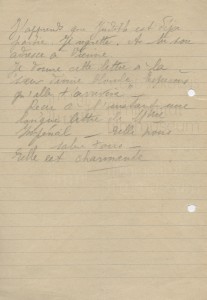 J'apprends que Judith est déjà
partie. Je regrette. As-tu son
adresse à Vienne
Je donne cette lettre à la
sœur Jeanne espérons
qu'elle t'arrivera.
Reçu à l'instant une
longue lettre de Mme
Elle nous
salue tous
Elle est charmante